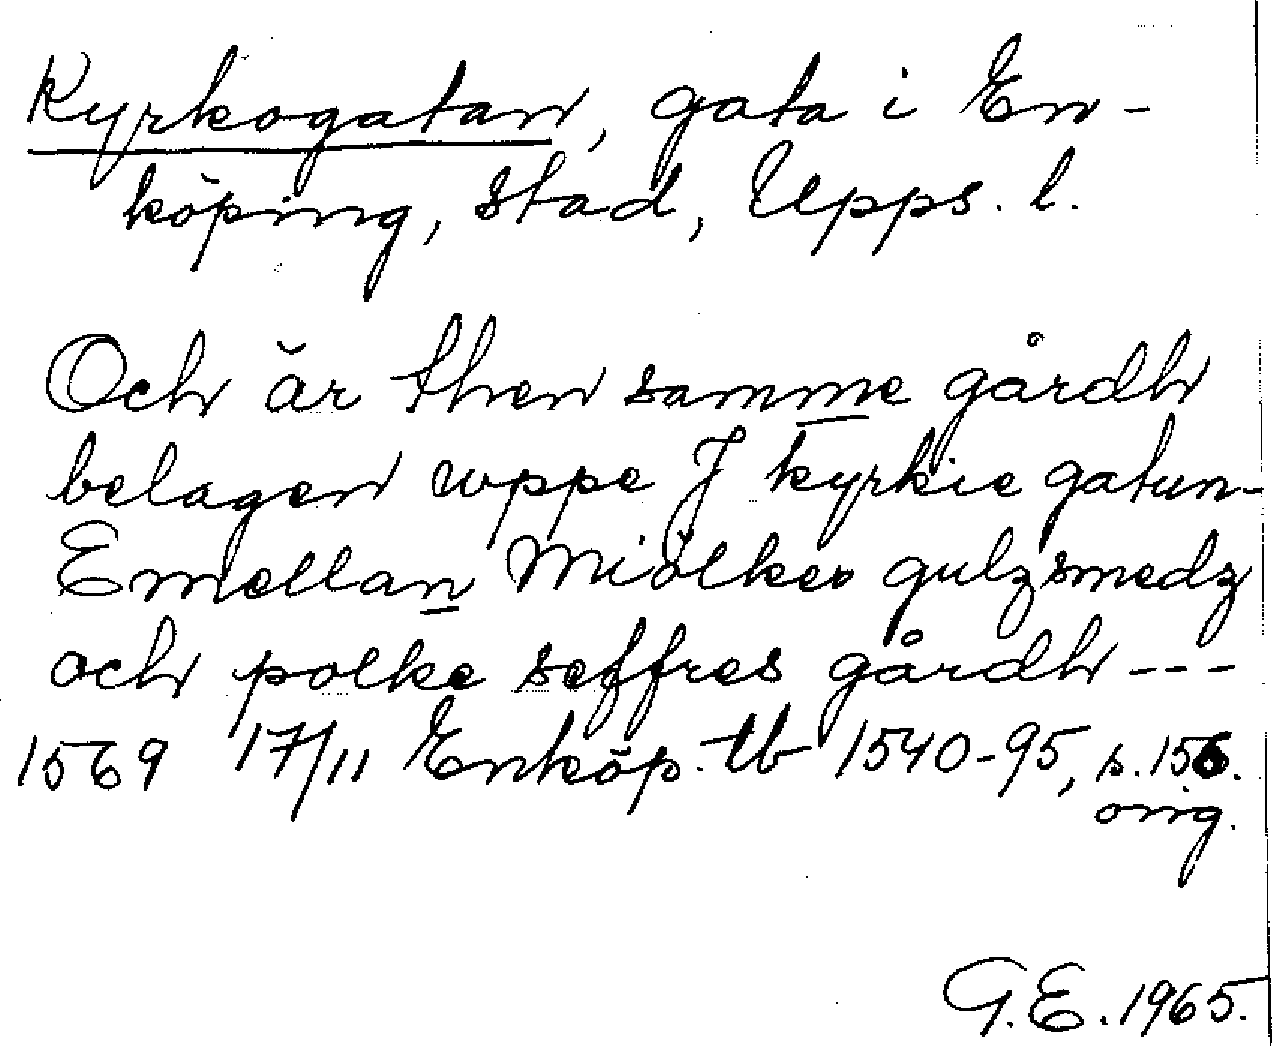 Kyrkogatan, gata i En-
köping, stad, Upps. l.
Och är then samme gårdh
belagen wppe J kyrkie gatun-
Emellan Miölkes gulzsmedz
och polke seffres gårdh ---
1569 17/11 Enköp. tb 1540-95, s. 156.
orig.
G.E. 1965.